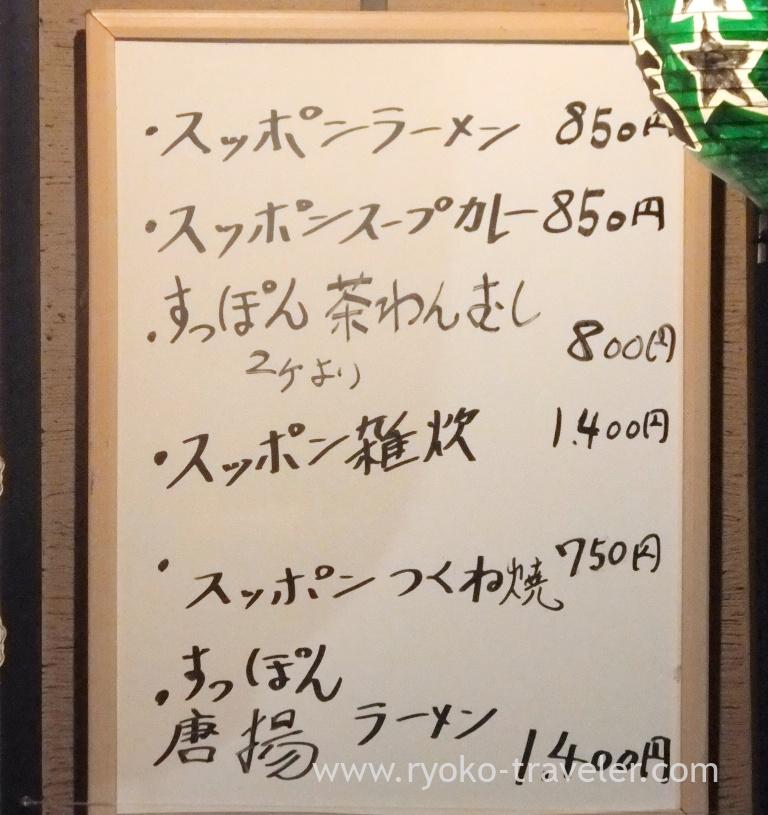 ・スッポンラーメン 850円
・スッポンスープカレー 850円
・すっぽん茶わんむし 800円
2ケより
・スッポン雑炊 1.400円
・スッポンつくね焼 750円
・すっぽん
唐揚 ラーメン 1.400円
www.ryoko-traveler.com